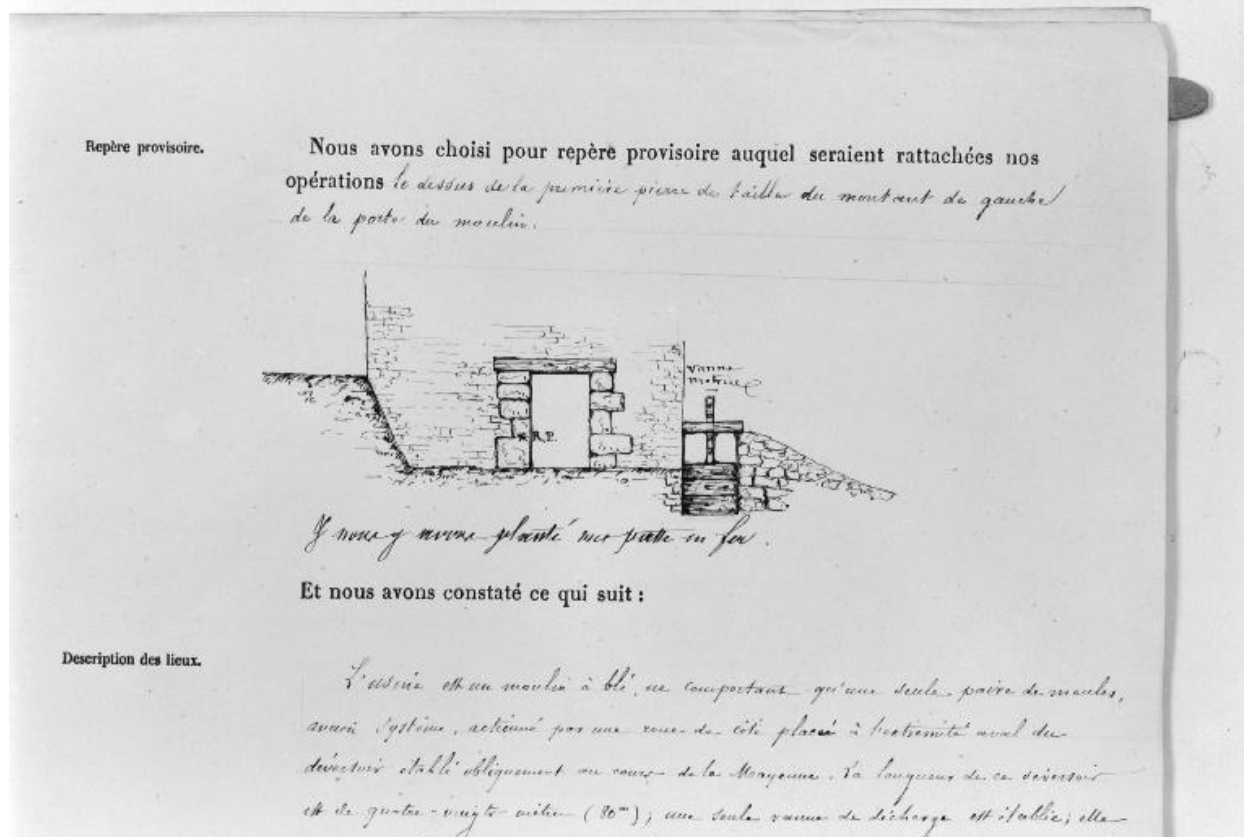 Repère provisoire.
Nous avons choisi pour repère provisoire auquel seraient rattachées nos
opérations le dessus de la première pierre de taille du montant de gauche
de la porte du moulin.
vanne
motrice
R.P.
nous y avons planté une patte en fer.
Et nous avons constaté ce qui suit :
Description des lieux.
L'usine est un moulin à blé, ne comportant qu'une seule paire de meules,
ancien système, actionné par une roue de côté placée à l'extrémité aval du
déversoir établi obliquement au cours de la Mayenne. La longueur de ce déversoir
est de quatre-vingts mètres (80m) ; une seule vanne de décharge est établie ; elle